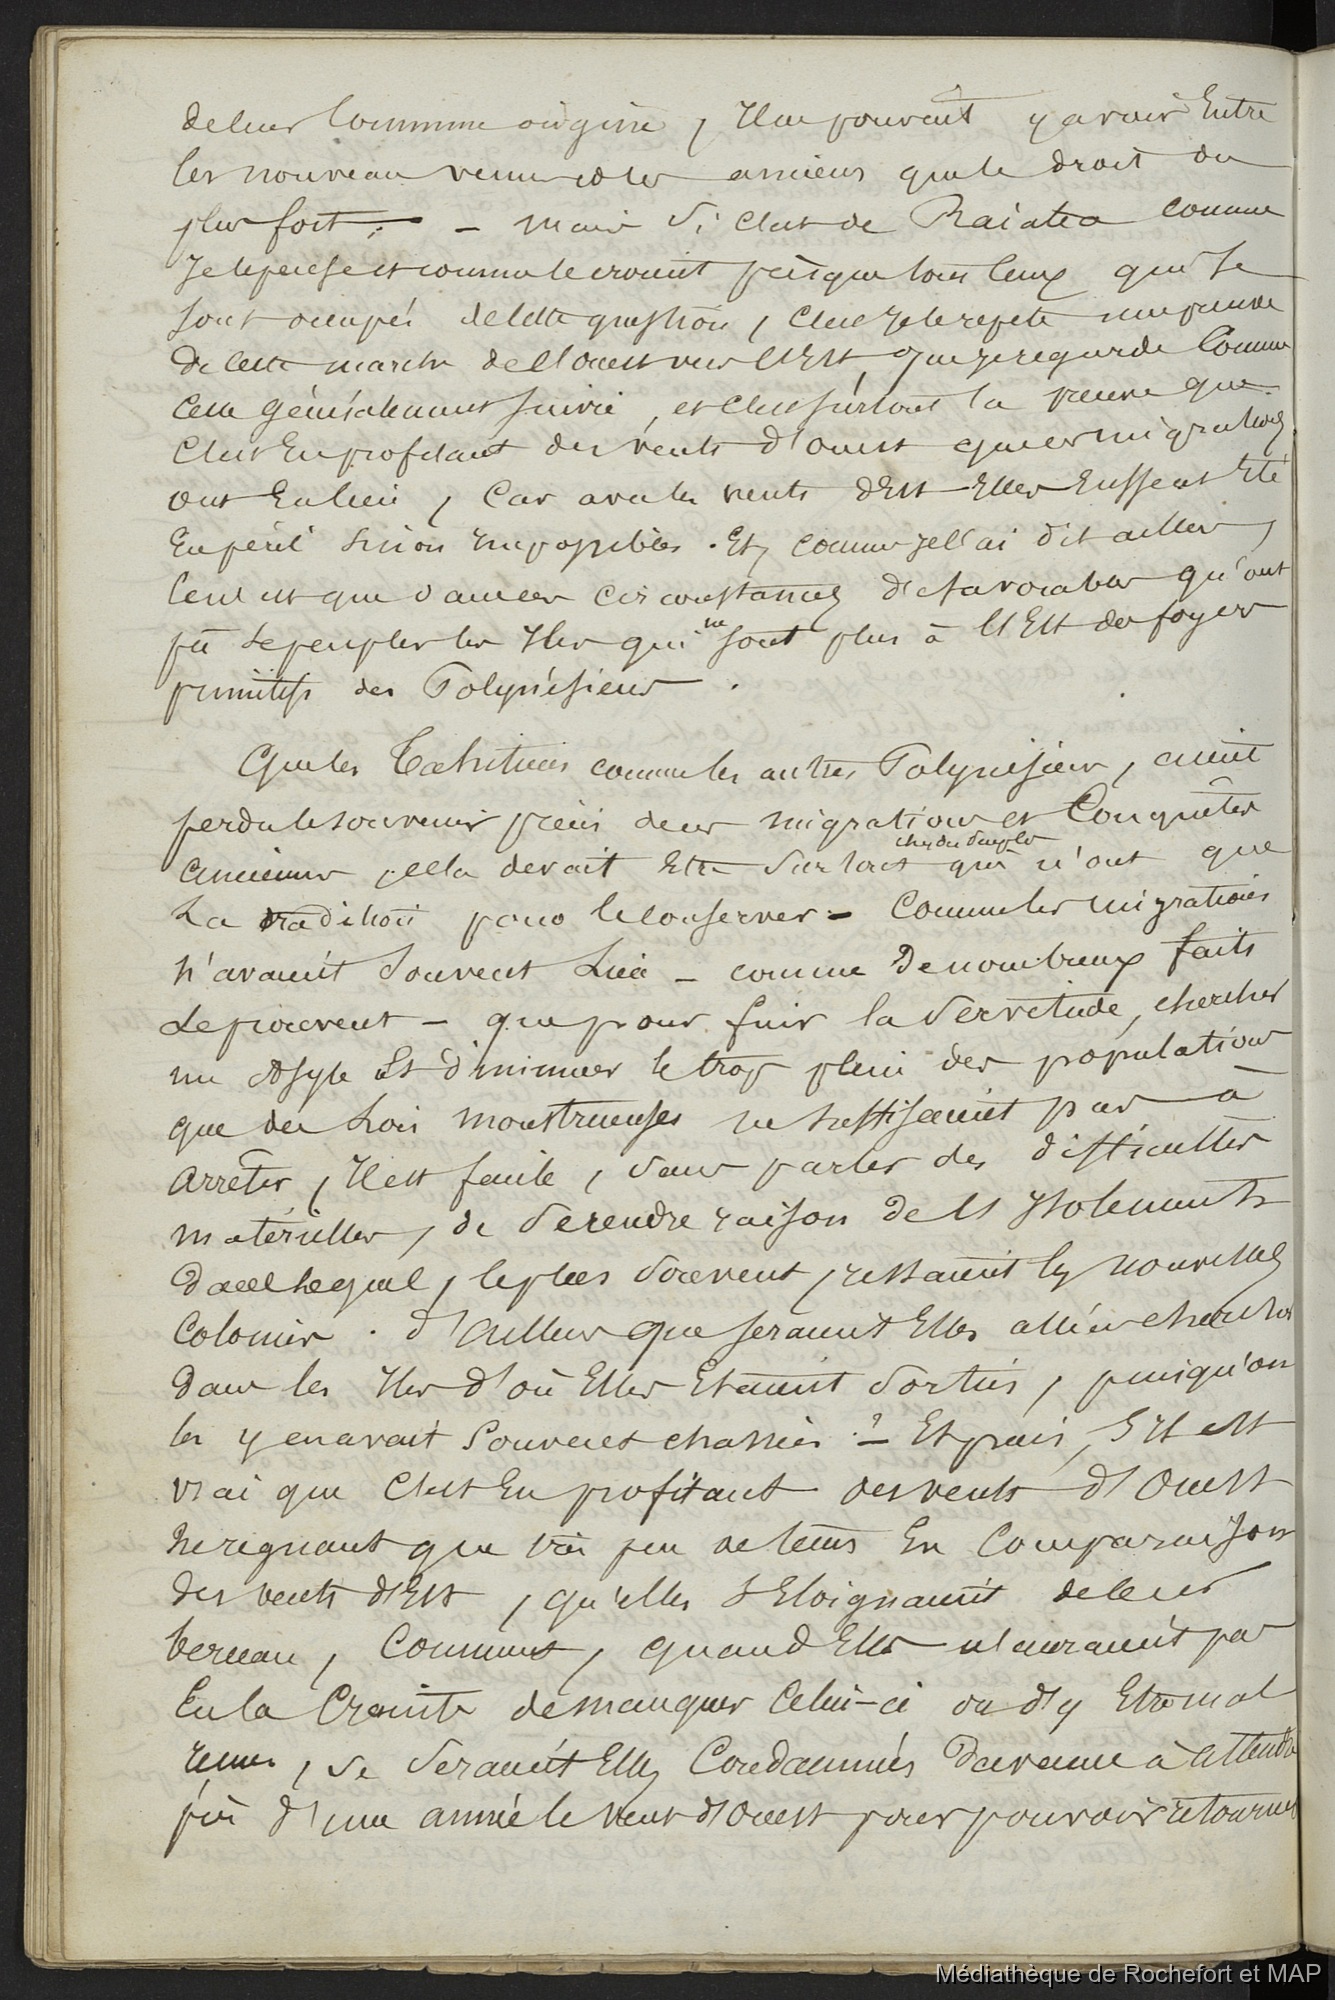 de leur commune origine, Il ne pouvait y avoir Entre
les nouveau venus et les anciens que le droit du
plus fort. — mais si c'est de Raiatea comme
Je le pense et comme le croient presque tous ceux qui se
sont occupés de cette question, c'est Je le repete une preuve
de cette marche de l'Ouest vers l'Est, que je regarde Comme
celle généralement suivie, et c'est surtout la preuve que
C'est En profitant des vents d'ouest que ces migrations
ont Eu lieu, Car avec les vents d'Est Elles Eussent Eté
En péril sinon impossibles. Et, comme je l'ai dit ailleurs,
Ce n'est que dans ces circonstances défavorables qu'ont
pû se peupler les Iles qui sont plus à l'Est des foyers
primitifs des Polynésiens.
Que les Tahitiens comme les autres Polynésiens, aient
perdu le souvenir précis de ces migrations et Conquêtes
anciennes, cela devait Etre surtout chez des peuples qui n'ont que
La tradition pour le conserver — Comme les migrations
n'avaient souvent Lieu — comme de nombreux faits
le prouvent — que pour fuir la servitude, chercher
un Asyle Et diminuer le trop plein des populations
que des Lois monstrueuses ne suffisaient pas à
arrêter, Il est facile, sans parler des difficultés
matérielles, de se rendre raison de l'Isolement
dans lequel, le plus souvent, restaient les nouvelles
Colonies. d'ailleurs que seraient Elles allées chercher
dans les Iles d'où Elles Etaient sorties, puisqu'on
les y en avait souvent chassées ? — Et puis, s'Il est
vrai que C'est En profitant des vents d'Ouest
ne regnant que très peu de tems En Comparaison
des vents d'Est, qu'elles s'Eloignaient de leur
berceau, Comment, quand Elles n'auraient pas
Eu la Crainte de manquer Celui-ci ou d'y Etre mal
reçues, se seraient Elles Condamnées d'avance à attendre
près d'une année le vent d'Ouest pour pouvoir retourner
Médiathèque de Rochefort et MAP